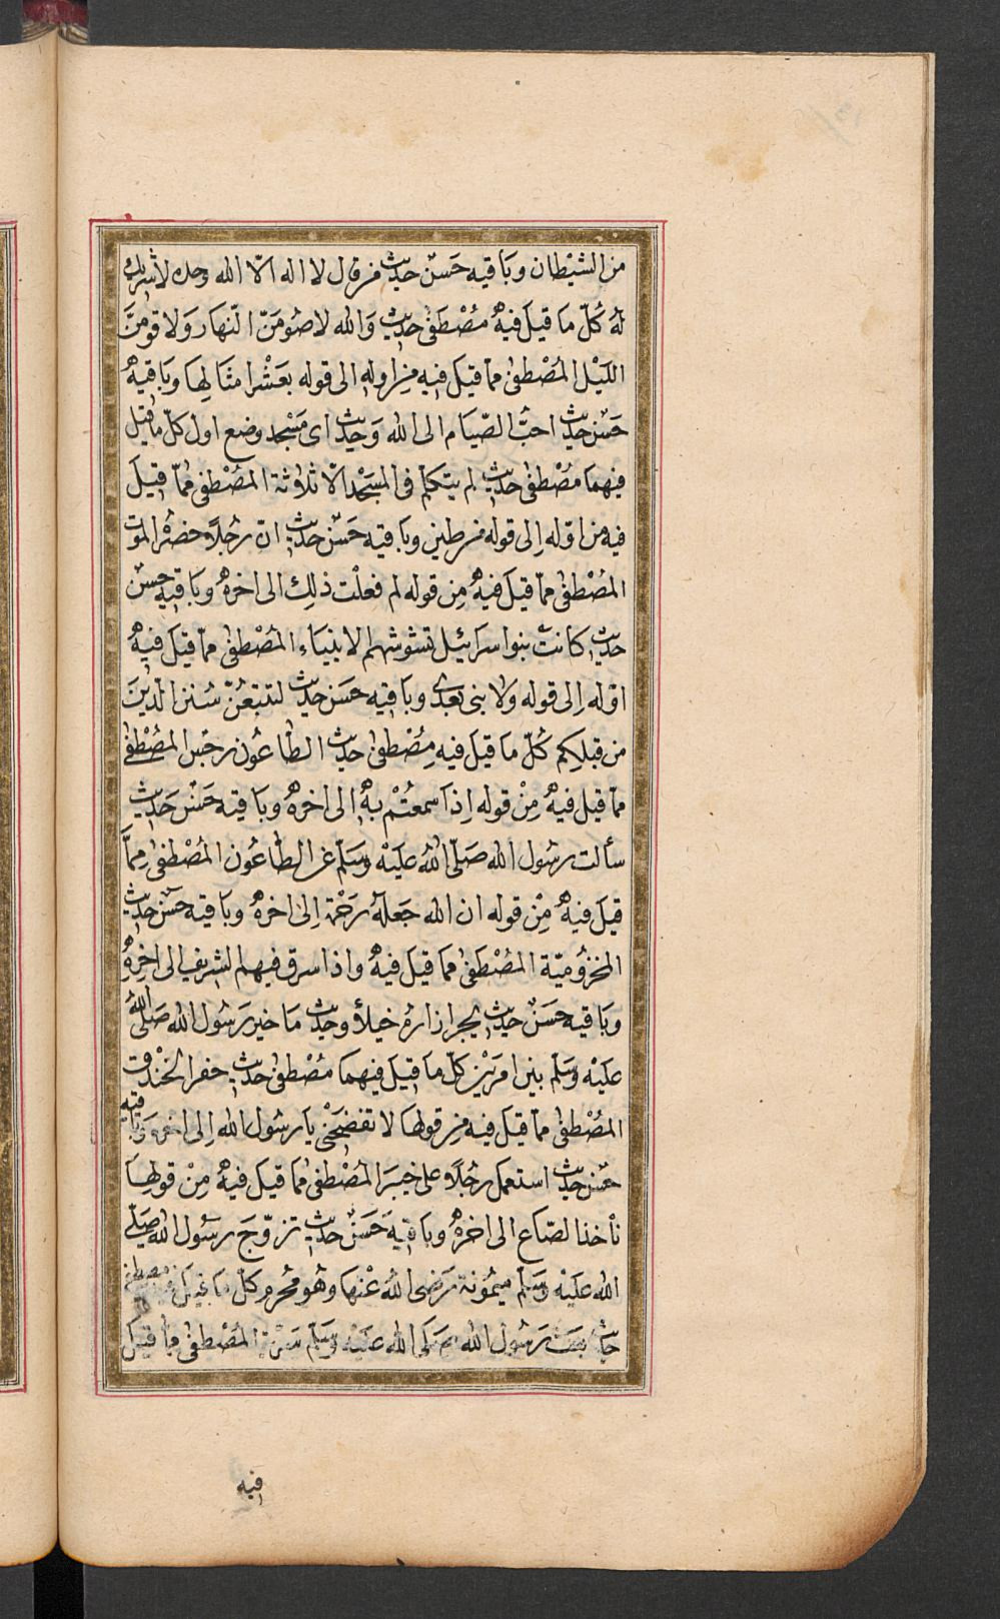 من الشيطان وباقيه حسن حديث من قال لا اله الا الله وحده لا شريك
له كلّ ما قيل فيه مصطفى حديث والله لا صومنّ النهار ولا قومنّ
الليل المصطفى مما قيل فيه من اوله الى قوله بعشر امثالها وباقيه
حسن حديث احبّ الصيام الى الله وحديث اى مسجد وضع اول كل ما قيل
فيهما مصطفى حديث لم يتكلم في المسجد الا ثلاثة المصطفى مما قيل
فيه من اوّله إلى قوله من طين وباقيه حسن حديث ان رجلا حضره الموت
المصطفى مما قيل فيه من قوله لم فعلت ذلك الى اخره وباقيه حسن
حديث كانت بنوا سرائيل تسوسهم الانبياء المصطفى مما قيل فيه
اوّله إلى قوله ولا بنى بعدى وباقيه حسن حديث لتتبعنّ سنن الذين
من قبلكم كلّ ما قيل فيه مصطفى حديث الطاعون رجس المصطفى
مما قيل فيه من قوله إذا سمعتم به الى اخره وباقيه حسن حديث
سألت رسول الله صلى الله عليه وسلم عن الطاعون المصطفى مما
قيل فيه من قوله ان الله جعله رحمة إلى اخره وباقيه حسن حديث
المخزومية المصطفى مما قيل فيه واذا سرق فيهم الشريف الى اخره
وباقيه حسن حديث يجر ازاره خيلأ وحديث ما خير رسول الله صلى الله
عليه وسلم بين امرين كلّ ما قيل فيهما مصطفى حديث حفر الخندق
المصطفى مما قيل فيه من قولها لا تفضحنى يا رسول الله إلى اخره وباقيه
حسن حديث استعمل رجلا على خيبر المصطفى مما قيل فيه من قولها
نأخذ الصاع الى اخره وباقيه حسن حديث تزوّج رسول الله صلى
الله عليه وسلم ميمونة رضى الله عنها وهو محرم كلّ ما قيل فيه مصطفى
حديث بعث رسول الله صلى الله عليه وسلم سرية المصطفى مما قيل
فيه